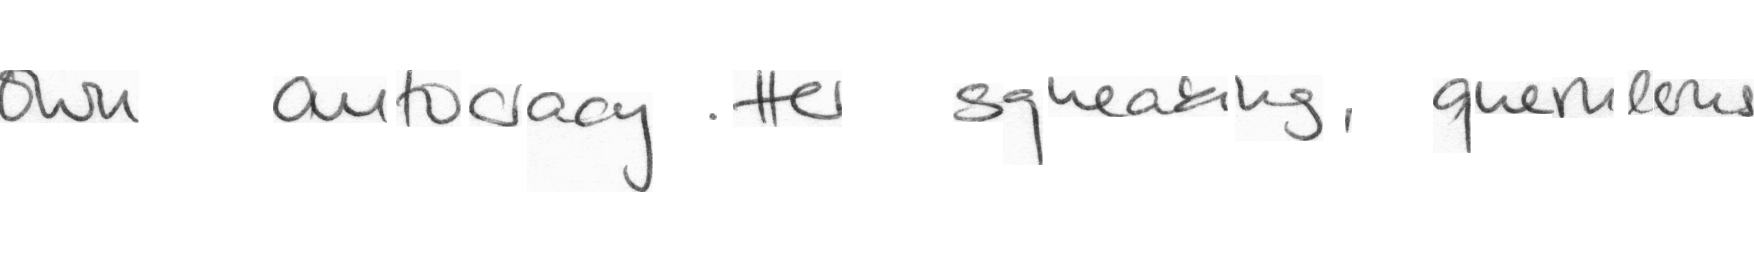 own autocracy. Her squeaking, querulous